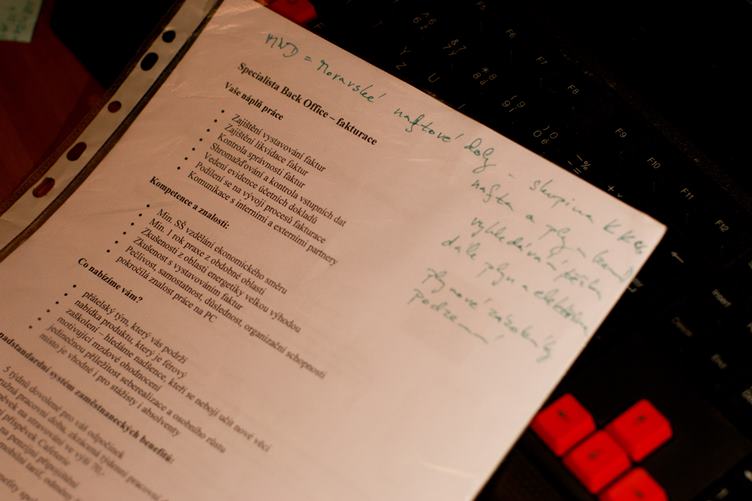 MND = Moravské naftové doly - skupina KKCG
nafta a plyn
vyhledávání
dále plyn a elektřina
plynové zásobníky
podzemní
Specialista Back Office – fakturace
Vaše náplň práce
• Zajištění vystavování faktur
• Zajištění likvidace faktur
• Kontrola správnosti faktur
• Shromažďování a kontrola vstupních dat
• Vedení evidence účetních dokladů
• Podílení se na vývoji procesů fakturace
• Komunikace s interními a externími partnery
Kompetence a znalosti:
• Min. SŠ vzdělání ekonomického směru
• Min. 1 rok praxe z obdobné oblasti
• Zkušenosti z oblasti energetiky velkou výhodou
• Zkušenost s vystavováním faktur
• Pečlivost, samostatnost, důslednost, organizační schopnosti
• pokročilá znalost práce na PC
Co nabízíme vám?
• přátelský tým, který vás podrží
• nabídka produktu, který je férový
• zaškolení – hledáme nadšence, kteří se nebojí učit nové věci
• motivující mzdové ohodnocení
• jedinečnou příležitost seberealizace a osobního růstu
• místo je vhodné i pro stážisty i absolventy
nadstandardní systém zaměstnaneckých benefitů:
5 týdnů dovolené pro váš odpočinek
pracovní doba, zkrácená týdenní pracovní
na stravování ve výši 70,-
příspěvek Cafeterie
na penzijní připojištění
F8
F9
F10
F11
F12
Insert